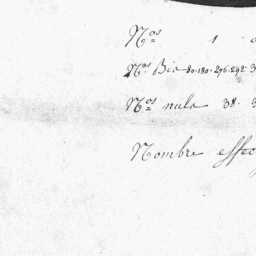 Nos 1
Nos Bis 80. 180. 296. 292. 3
Nos nuls 38. 3
Nombre effec